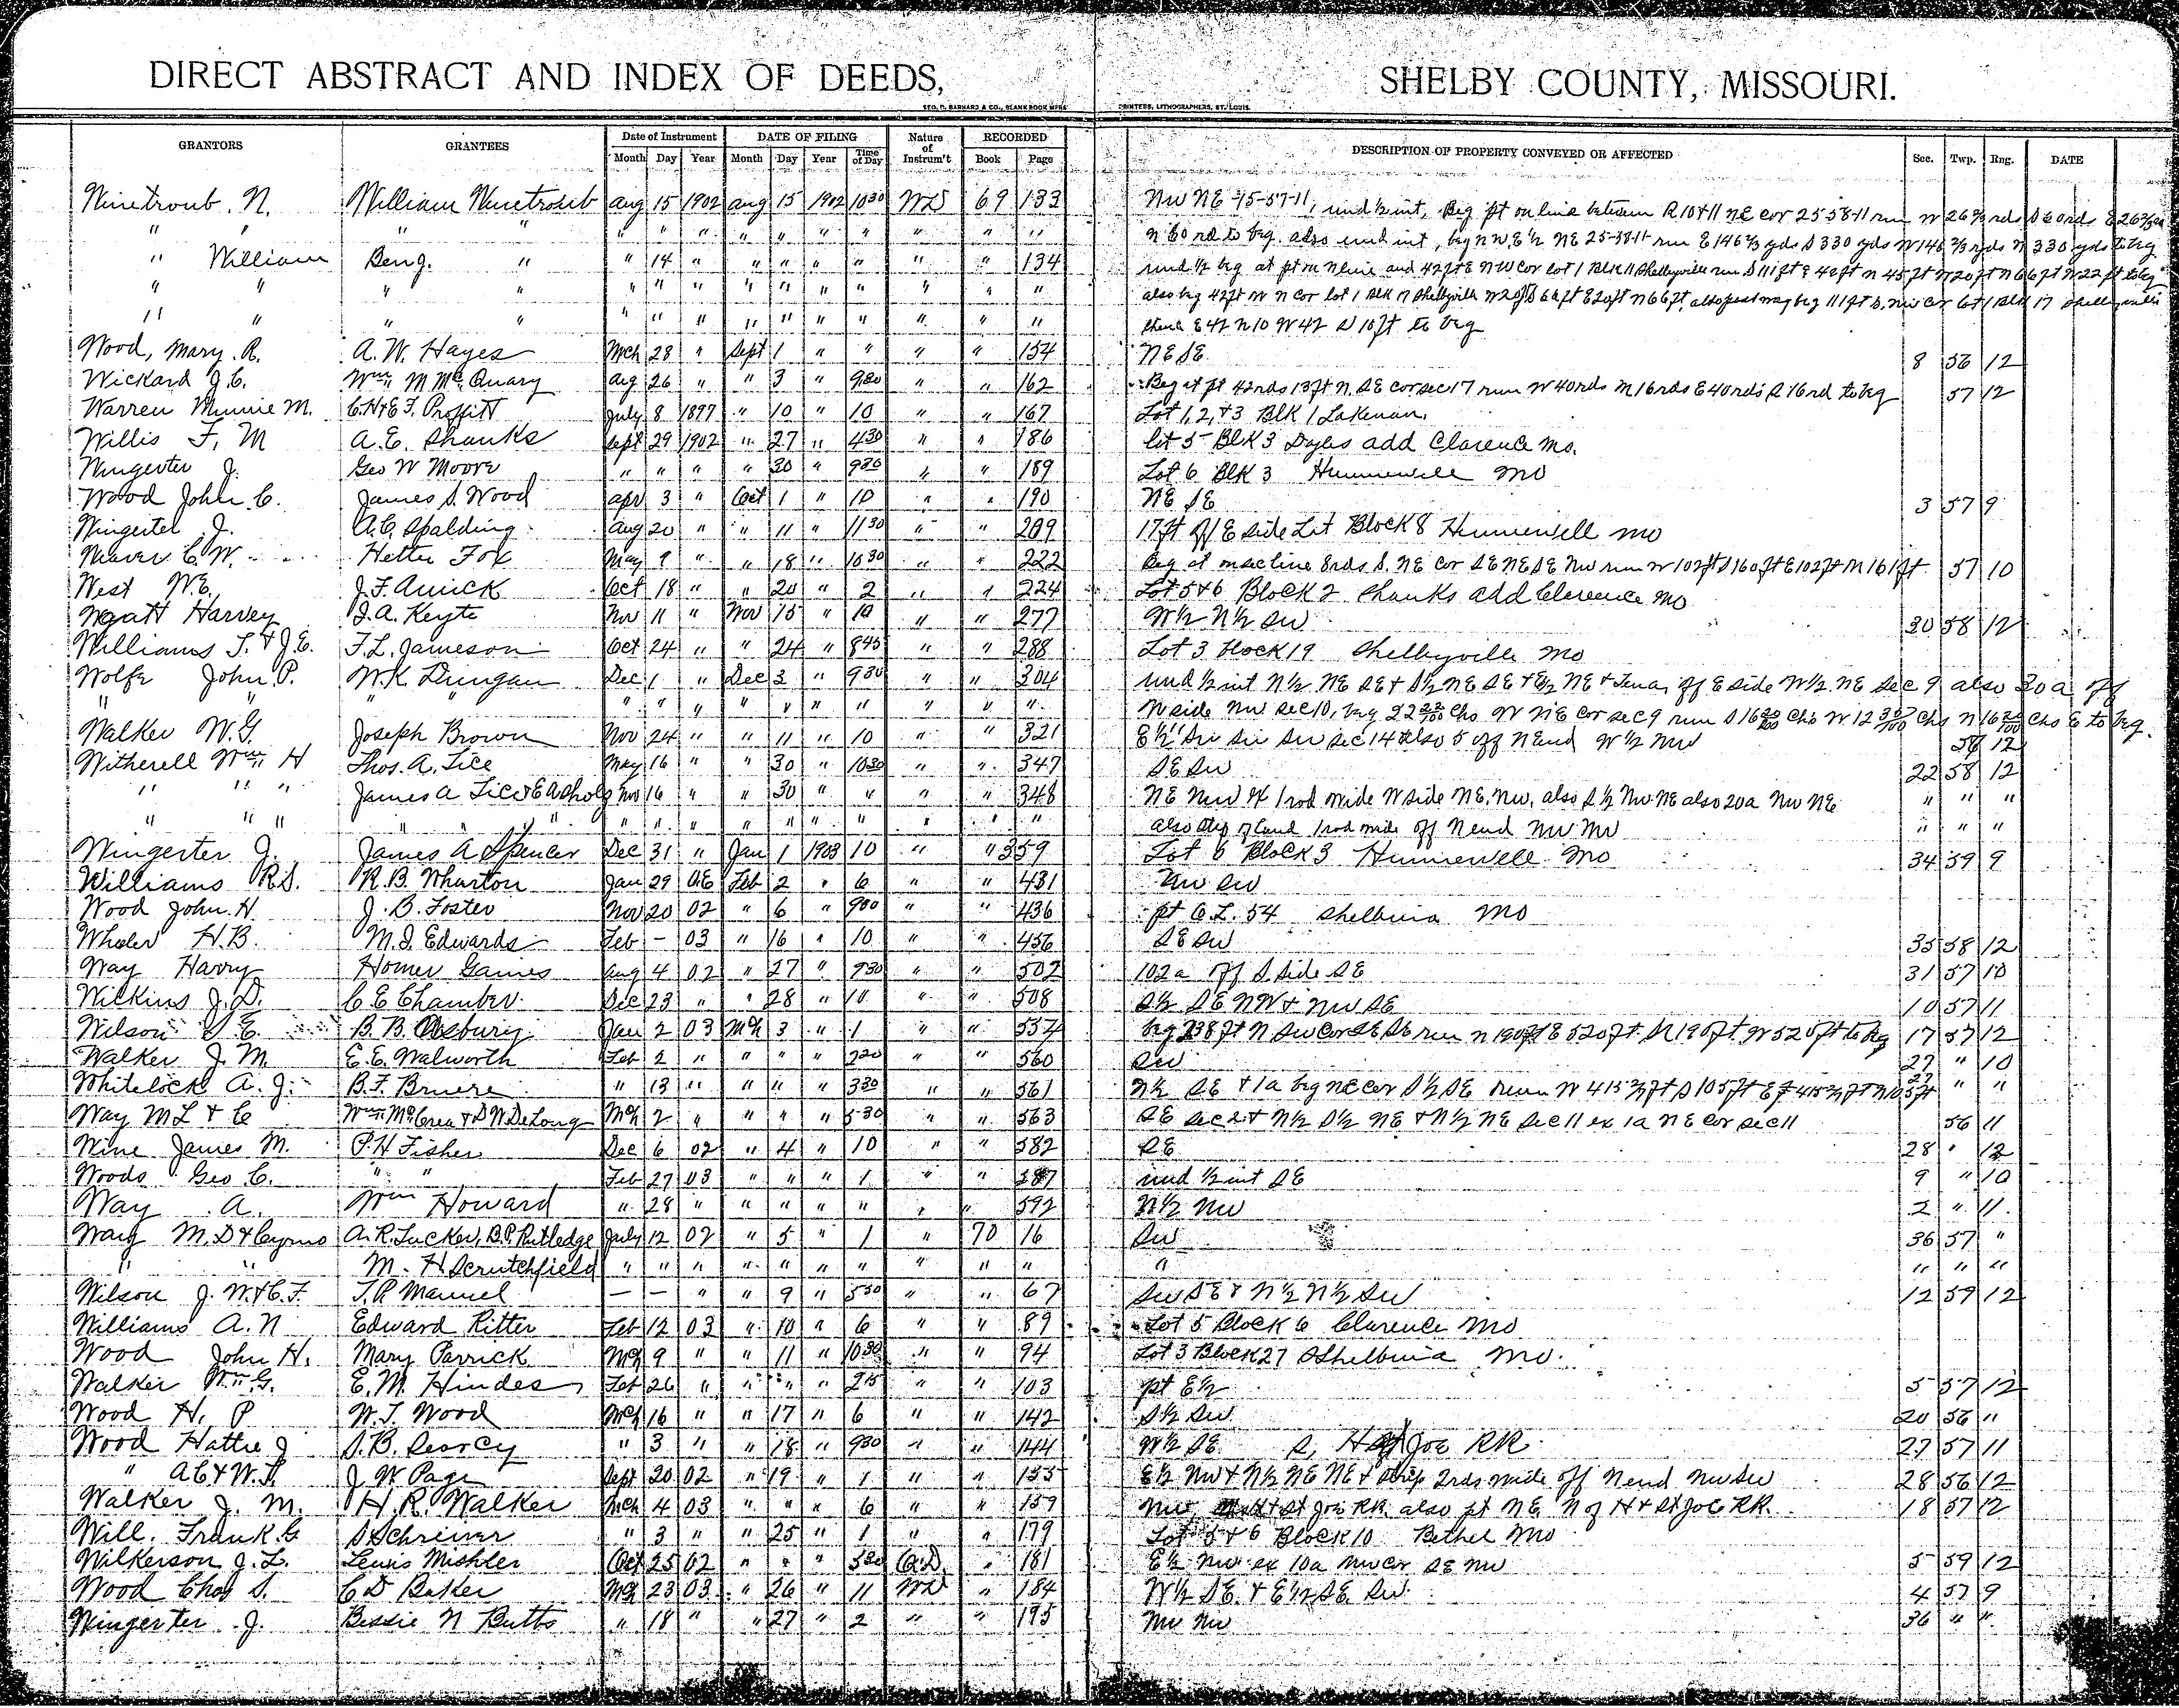 DIRECT ABSTRACT AND INDEX OF DEEDS, SHELBY COUNTY, MISSOURI.
GEO. D. BARNARD & CO., BLANK BOOK MFRS PRINTERS, LITHOGRAPHERS, ST. LOUIS.
GRANTORS GRANTEES Date of Instrument DATE OF FILING Nature of Instrum't RECORDED DESCRIPTION OF PROPERTY CONVEYED OR AFFECTED Sec. Twp. Rng. DATE
Month Day Year Month Day Year Time of Day Book Page
William Aug 15 1902 Aug 15 1902 10 30 WD 69 133 NW NE 15-57-11, und ½ int, Beg pt on line between R 10 & 11 NE cor 25 58-11 run W 26⅔ rds S 60 rds E 26⅔ rds
" " " " " " " " " " " " " N 60 rd to beg. also und int, beg NW E½ NE 25-58-11 run E 146⅔ yds S 330 yds W 146⅔ yds N 330 yds to beg
" William Benj. " " 14 " " " " " " " 134 und ½ beg at pt on N line and 42 ft E NW cor lot 1 Blk 11 Shelbyville run S 111 ft E 42 ft N 45 ft W 20 ft N 66 ft W 22 ft to beg
" " " " " " " " " " " " " " also beg 42 ft W N cor lot 1 Blk 17 Shelbyville W 20 ft S 66 ft E 20 ft N 66 ft, also beg 111 ft S. NW cor lot 1 Blk 17 Shelbyville
" " " " " " " " " " " " " " thence E 42 N 10 W 42 S 10 ft to beg
Wood, Mary. R. A. W. Hayes Mch 28 " Sept 1 " " " " 154 NE SE 8 56 12
Wickard J. C. Wm M McQuary Aug 26 " " 3 " 9 30 " " 162 Beg at pt 42 rds 13 ft N. SE cor sec 17 run W 40 rds N 16 rds E 40 rds S 16 rd to beg 57 12
Warren Minnie M. C. H & E. F. Proffitt July 8 1897 " 10 " 10 " " 167 Lot 1, 2, & 3 Blk 1 Lakenan.
Willis F. M A. E. Shanks Sept 29 1902 " 27 " 4 30 " " 186 Lot 5 Blk 3 Dyes add Clarence Mo.
Wingerter J. Geo W Moore " " " " 30 " 9 30 " " 189 Lot 6 Blk 3 Hunnewell Mo
Wood John C. James S. Wood Apr 3 " Oct 1 " 10 " " 190 NE SE 3 57 9
Wingerter J. A. C. Spalding Aug 20 " " 11 " 11 30 " " 209 17 ft off E side Lot Block 8 Hunnewell Mo
C. W. Hetter Fox May 9 " " 18 " 10 30 " " 222 Beg at line 8 rds S. NE cor SE NE SE NW run W 102 ft S 160 ft E 102 ft N 161 ft 57 10
West W. E. J. F. Amick Oct 18 " " 20 " 2 " " 224 Lot 5 & 6 Block 2 Shanks add Clarence Mo
Harvey J. A. Keyte Nov 11 " Nov 15 " 10 " " 277 W½ N½ SW 30 58 12
Williams T. & J. E. F. L. Jameson Oct 24 " " 24 " 8 45 " " 288 Lot 3 Block 19 Shelbyville Mo
Wolfe John P. W. K. Dungan Dec 1 " Dec 3 " 9 30 " " 304 und ½ int N½ NE SE & S½ NE SE & E½ NE & off E side W½ NE Sec 9 also 30a off
" " " " " " " " " " " " " W side NW sec 10, beg 22 chs W NE cor sec 9 run S 16 chs W 12 chs N 16 chs E to beg.
Walker W. G. Joseph Brown Nov 24 " " 11 " 10 " " 321 E½ SW SW SW sec 14 also 5 off N end W½ NW 58 12
Witherell Wm H Thos. A. Tice May 16 " " 30 " 10 30 " " 347 SE SW 22 58 12
" " " James A Tice & Nov 16 " " 30 " " " " 348 NE NW & 1 rod wide W side NE. NW, also S½ NW NE also 20a NW NE " " "
" " " " " " " " " " " " " " " " also strip of land 1 rod wide off N end NW NW " " "
Wingerter J. James A Spencer Dec 31 " Jan 1 1903 10 " " 359 Lot 6 Block 3 Hunnewell Mo 34 59 9
Williams R. S. R. B. Wharton Jan 29 Feb 2 " 6 " " 431 NW SW
Wood John H. J. B. Foster Nov 20 02 " 6 " 9 00 " " 436 pt O. L. 54 Shelbina Mo
Wheeler H. B. M. J. Edwards Feb - 03 " 16 " 10 " " 456 SE SW 35 58 12
Way Harry Homer Gaines Aug 4 02 " 27 " 9 30 " " 502 102a off S. side SE 31 57 10
Wilkins J. D. C E Chamber Dec 23 " " 28 " 10 " " 508 S½ SE NW & NW SE 10 57 11
Wilson S. E. B. B. Asbury Jan 2 03 Mch 3 " 1 " " 554 beg 238 ft N SW cor SE SE run N 190 ft E 520 ft S 190 ft W 520 ft to beg 17 57 12
Walker J. M. E. E. Walworth Feb 2 " " " " 2 20 " " 560 SW 27 " 10
Whitelock A. J. B. F. Bruere " 13 " " " " 3 30 " " 561 N½ SE & 1a beg NE cor S½ SE run W 415⅔ ft S 105 ft E 415⅔ ft N 105 ft 27 " "
Way M L & C Wm McCrea & D W DeLong Mch 2 " " " " 5 30 " " 563 SE sec 2 & N½ S½ NE & N½ NE Sec 11 ex 1a NE cor sec 11 56 11
Wine James M. P. H Fisher Dec 6 02 " 4 " 10 " " 582 SE 28 " 12
Woods Geo C. " " Feb 27 03 " " " 1 " " 587 und ½ int SE 9 " 10
Way A. Wm Howard " 28 " " " " " " " 592 N½ NW 2 " 11
Way M. D & Cyrus A. R. Tucker, B. P. Rutledge July 12 02 " 5 " 1 " 70 16 SW 36 57 "
" " M. H Scrutchfield " " " " " " " " " " " " " "
Wilson J. W. & C. F. T. P. Manuel — — " " 9 " 5 30 " " 67 SW SE & N½ N½ SW 12 59 12
Williams A. N Edward Ritter Feb 12 03 " 10 " 6 " " 89 Lot 5 Block 6 Clarence Mo
Wood John H. Mary Parrick Mch 9 " " 11 " 10 30 " " 94 Lot 3 Block 27 Shelbina Mo.
Walker Wm G. E. M. Hindes Feb 26 " " " " 2 15 " " 103 pt E½ 5 57 12
Wood H. P W. T. Wood Mch 16 " " 17 " 6 " " 142 S½ SW 20 56 "
Wood Hattie J S. B. Searcy " 3 " " 18 " 9 30 " " 144 W½ SE S, H & St Joe RR 27 57 11
" A C & W. J. W Page Sept 20 02 " 19 " 1 " " 155 E½ NW & N½ NE NE & strip 2 rds wide off N end NW SW 28 56 12
Walker J. M. H. R. Walker Mch 4 03 " " " 6 " " 159 NW, H & St Joe RR. also pt NE N of H & St Joe RR. 18 57 12
Will. Frank. G S Schreiner " 3 " " 25 " 1 " " 179 Lot 5 & 6 Block 10 Bethel Mo
Wilkerson J. L. Lewis Mishler Oct 25 02 " " " 5 30 Q. D. " 181 E½ NW ex 10a NW cor SE NW 5 59 12
Wood Chas S. C D Baker Mch 23 03 " 26 " 11 WD " 184 W½ SE. & E½ SE SW 4 57 9
Wingerter J. Bessie N Butts " 18 " " 27 " 2 " " 195 NW NW 36 " "